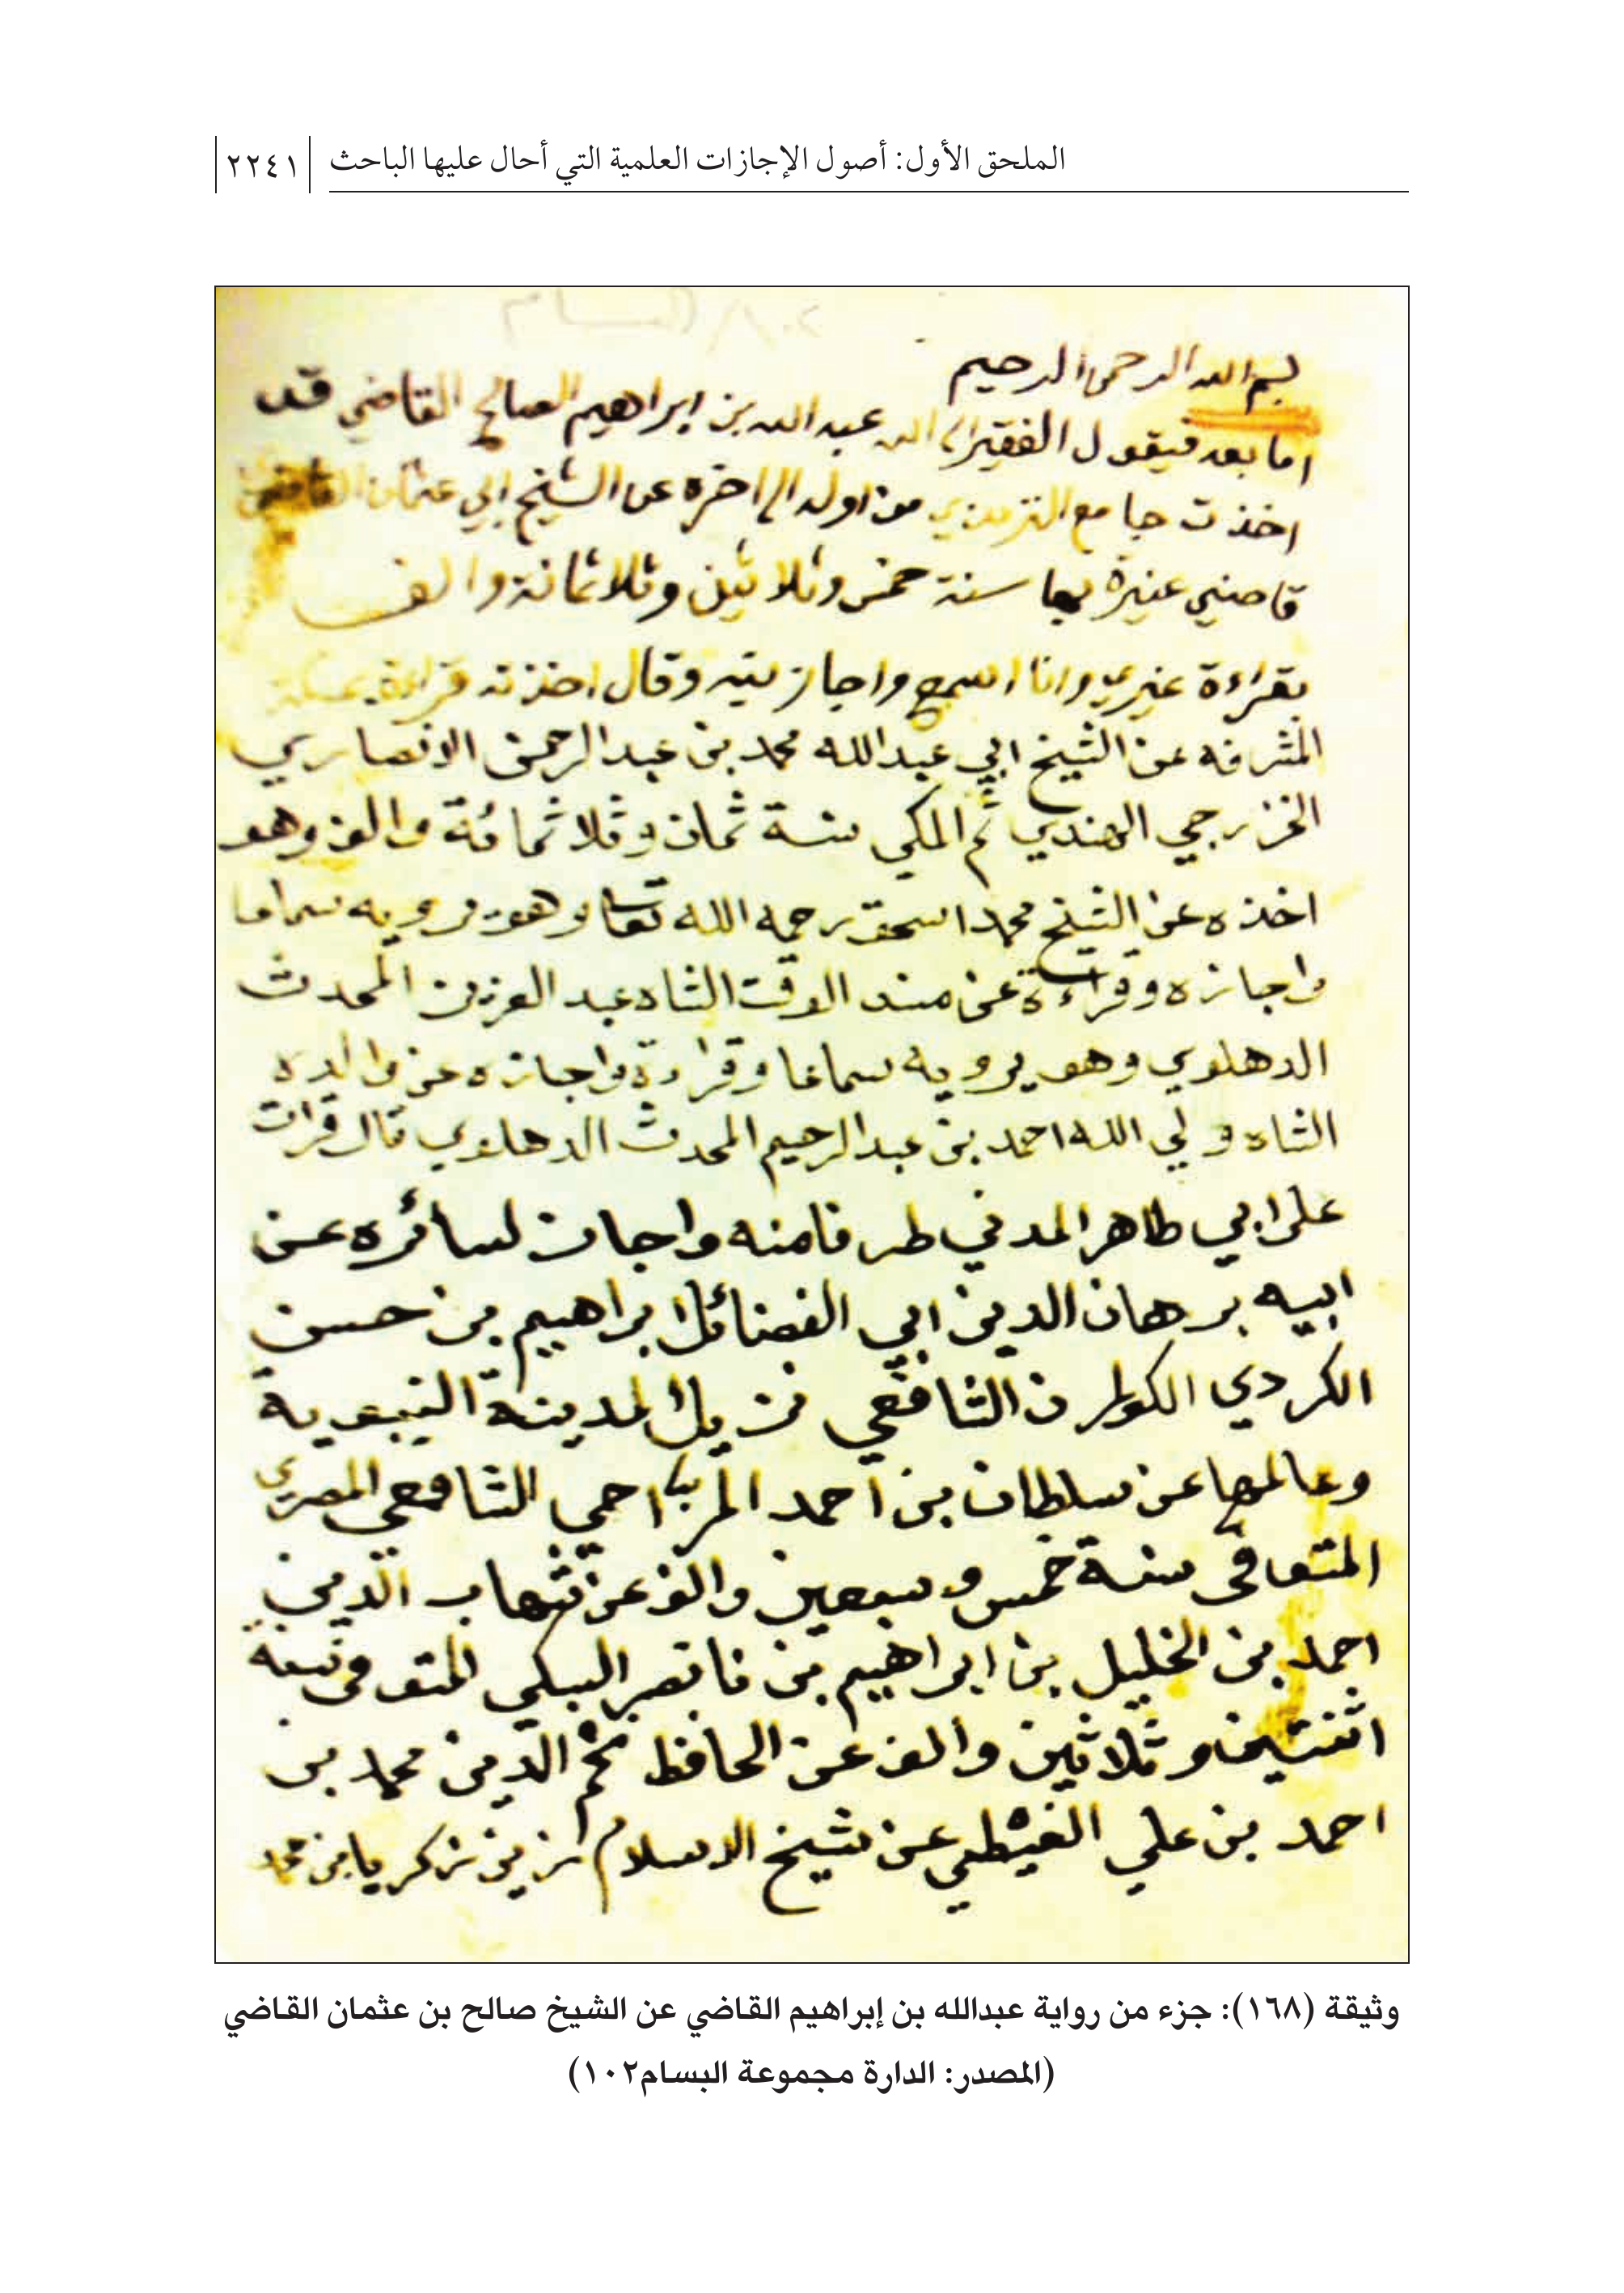 الملحق الأول: أصول الإجازات العلمية التي أحال عليها الباحث
٢٢٤١
١٠٢/البسام
بسم الله الرحمن الرحيم
اما بعد فيقول الفقير الى الله عبد الله بن ابراهيم الصالح القاضي قد
اخذت جامع الترمذي من اوله الى اخره عن الشيخ ابي عثمان القاضي
قاضي عنيزة بها سنة خمس وثلاثين وثلاثمائة والف
بقراءة غيري وانا اسمع واجازنيه وقال اخذته قراءة بمكة
المشرفه عن الشيخ ابي عبدالله محمد بن عبدالرحمن الانصاري
الخزرجي الهندي ثم المكي سنة ثمان وثلاثمائة والف وهو
اخذه عن الشيخ محمد اسحق رحمه الله تعا وهو يرويه سماعا
واجازه وقراءة عن مسند الوقت الشاه عبد العزيز المحدث
الدهلوي وهو يرويه سماعا وقراءة واجازه عن والده
الشاه ولي الله احمد بن عبدالرحيم المحدث الدهلوي قال قرات
على ابي طاهر المدني طرفا منه واجاز لسائره عن
ابيه برهان الدين ابي الفضائل ابراهيم بن حسن
الكردي الكوراني الشافعي نزيل المدينة النبوية
وعالمها عن سلطان بن أحمد المزاحي الشافعي المصري
المتوافى سنة خمس وسبعين والف عن شهاب الدين
احمد بن الخليل بن ابراهيم بن ناصر السبكي المتوفى سنة
اثنتين وثلاثين والف عن الحافظ نجم الدين محمد بن
احمد بن علي الغيطي عن شيخ الاسلام زين زكريا بن محمد
وثيقة (١٦٨): جزء من رواية عبدالله بن إبراهيم القاضي عن الشيخ صالح بن عثمان القاضي
(المصدر: الدارة مجموعة البسام١٠٢)